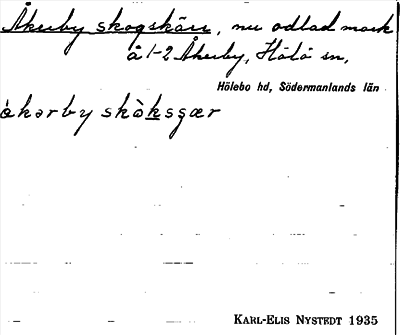 Åkerby skogskärr, nu odlad mark
å 1-2 Åkerby, Hölö sn,
Hölebo hd, Södermanlands län
åkərby skòksɕær
KARL-ELIS NYSTEDT 1935